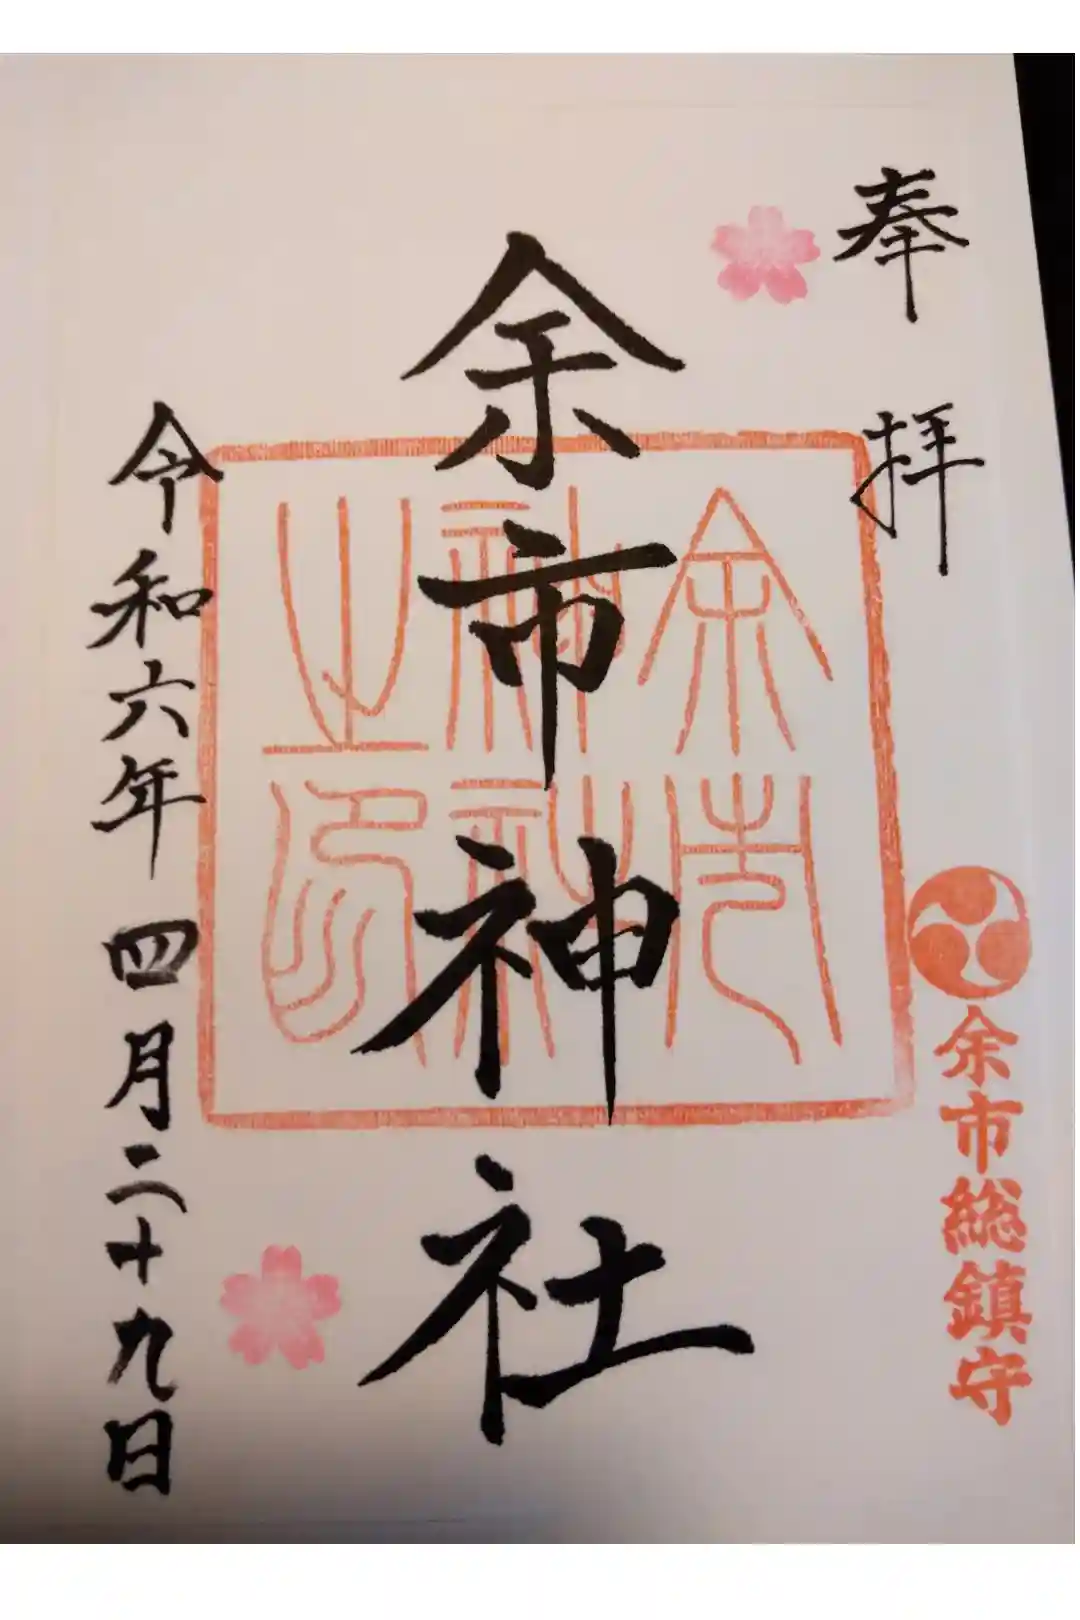 奉拝
余市総鎮守
余市神社
余市神社之印
令和六年四月二十九日